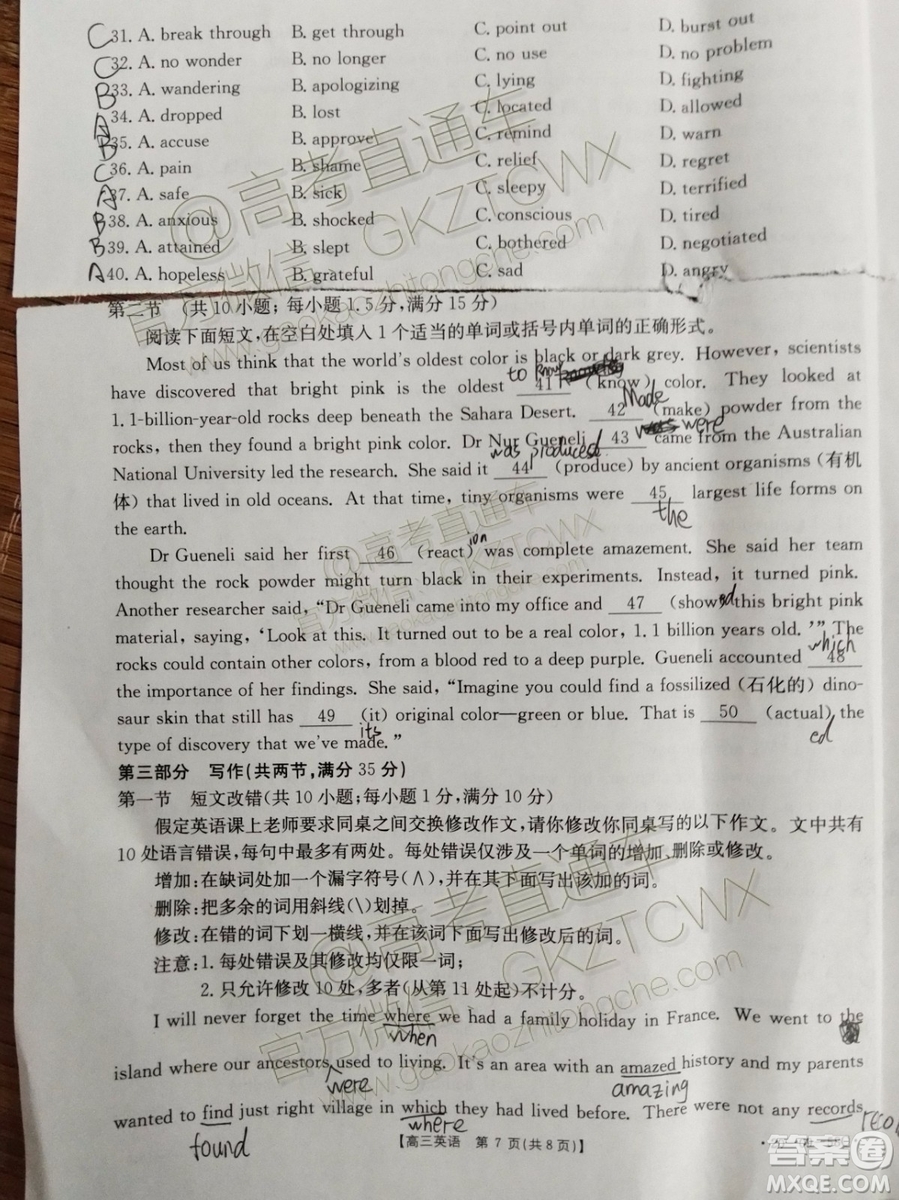 C 31. A. break through B. get through C. point out D. burst out
C 32. A. no wonder B. no longer C. no use D. no problem
B 33. A. wandering B. apologizing C. lying D. fighting
34. A. dropped B. lost C. located D. allowed
A 35. A. accuse B. approve C. remind D. warn
C 36. A. pain B. shame C. relief D. regret
A 37. A. safe B. sick C. sleepy D. terrified
B 38. A. anxious B. shocked C. conscious D. tired
B 39. A. attained B. slept C. bothered D. negotiated
A 40. A. hopeless B. grateful C. sad D. angry
第二节 (共10小题;每小题1.5分,满分15分)
阅读下面短文,在空白处填入1个适当的单词或括号内单词的正确形式。
Most of us think that the world's oldest color is black or dark grey. However, scientists
to know
have discovered that bright pink is the oldest 41 (know) color. They looked at
Made
1.1-billion-year-old rocks deep beneath the Sahara Desert. 42 (make) powder from the
were
rocks, then they found a bright pink color. Dr Nur Gueneli 43 came from the Australian
was produced
National University led the research. She said it 44 (produce) by ancient organisms (有机
体) that lived in old oceans. At that time, tiny organisms were 45 largest life forms on
the
the earth.
ion
Dr Gueneli said her first 46 (react) was complete amazement. She said her team
thought the rock powder might turn black in their experiments. Instead, it turned pink.
Another researcher said, "Dr Gueneli came into my office and 47 (show) this bright pink
ed
material, saying, 'Look at this. It turned out to be a real color, 1.1 billion years old.'" The
which
rocks could contain other colors, from a blood red to a deep purple. Gueneli accounted 48
the importance of her findings. She said, "Imagine you could find a fossilized (石化的) dino-
saur skin that still has 49 (it) original color—green or blue. That is 50 (actual) the
its
ed
type of discovery that we've made."
第三部分 写作(共两节,满分35分)
第一节 短文改错(共10小题;每小题1分,满分10分)
假定英语课上老师要求同桌之间交换修改作文,请你修改你同桌写的以下作文。文中共有
10处语言错误,每句中最多有两处。每处错误仅涉及一个单词的增加、删除或修改。
增加:在缺词处加一个漏字符号(∧),并在其下面写出该加的词。
删除:把多余的词用斜线(\)划掉。
修改:在错的词下划一横线,并在该词下面写出修改后的词。
注意:1. 每处错误及其修改均仅限一词;
2. 只允许修改10处,多者(从第11处起)不计分。
I will never forget the time where we had a family holiday in France. We went to the
when
island where our ancestors used to living. It's an area with an amazed history and my parents
were amazing
wanted to find just right village in which they had lived before. There were not any records
found where
【高三英语 第7页(共8页)】
@高考直通车
官方微信:GKZTCWX
www.gaokaozhitongche.com
@高考直通车
官方微信:GKZTCWX
www.gaokaozhitongche.com
@高考直通车
官方微信:GKZTCWX
www.gaokaozhitongche.com
答案圈
MXQE.COM